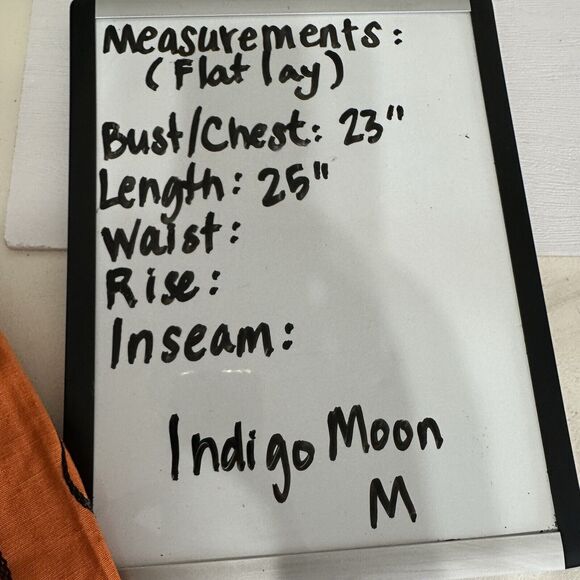 Measurements:
(Flat lay)
Bust/Chest: 23"
Length: 25"
Waist:
Rise:
Inseam:
Indigo Moon
M